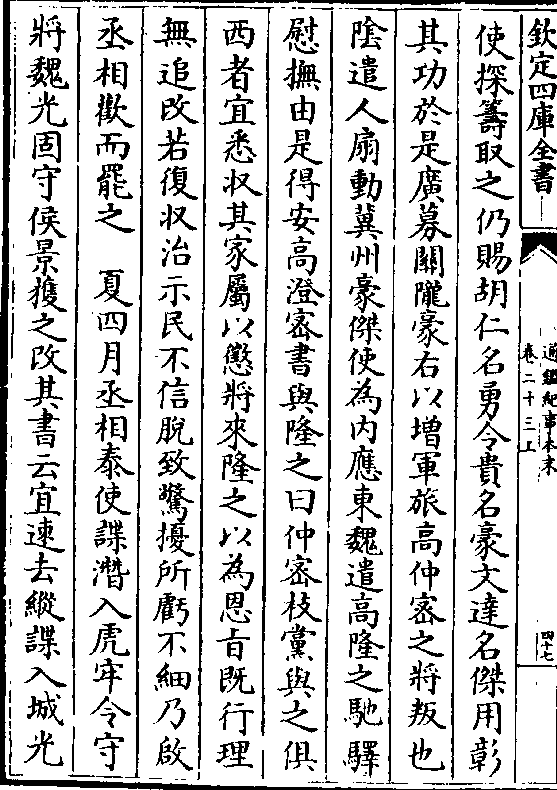 欽定四庫全書
通鑑紀事本末
卷二十三上
四十七
使探籌取之仍賜胡仁名勇令貴名豪文達名傑用彰
其功於是廣募關隴豪右以増軍旅高仲宻之將叛也
陰遣人扇動冀州豪傑使為内應東魏遣高隆之馳驛
慰撫由是得安高澄宻書與隆之曰仲宻枝黨與之俱
西者宜悉收其家屬以懲將來隆之以為恩㫖既行理
無追改若復收治示民不信脱致驚擾所虧不細乃啟
丞相歡而罷之　夏四月丞相泰使諜潛入虎牢令守
將魏光固守侯景獲之改其書云宜速去縱諜入城光